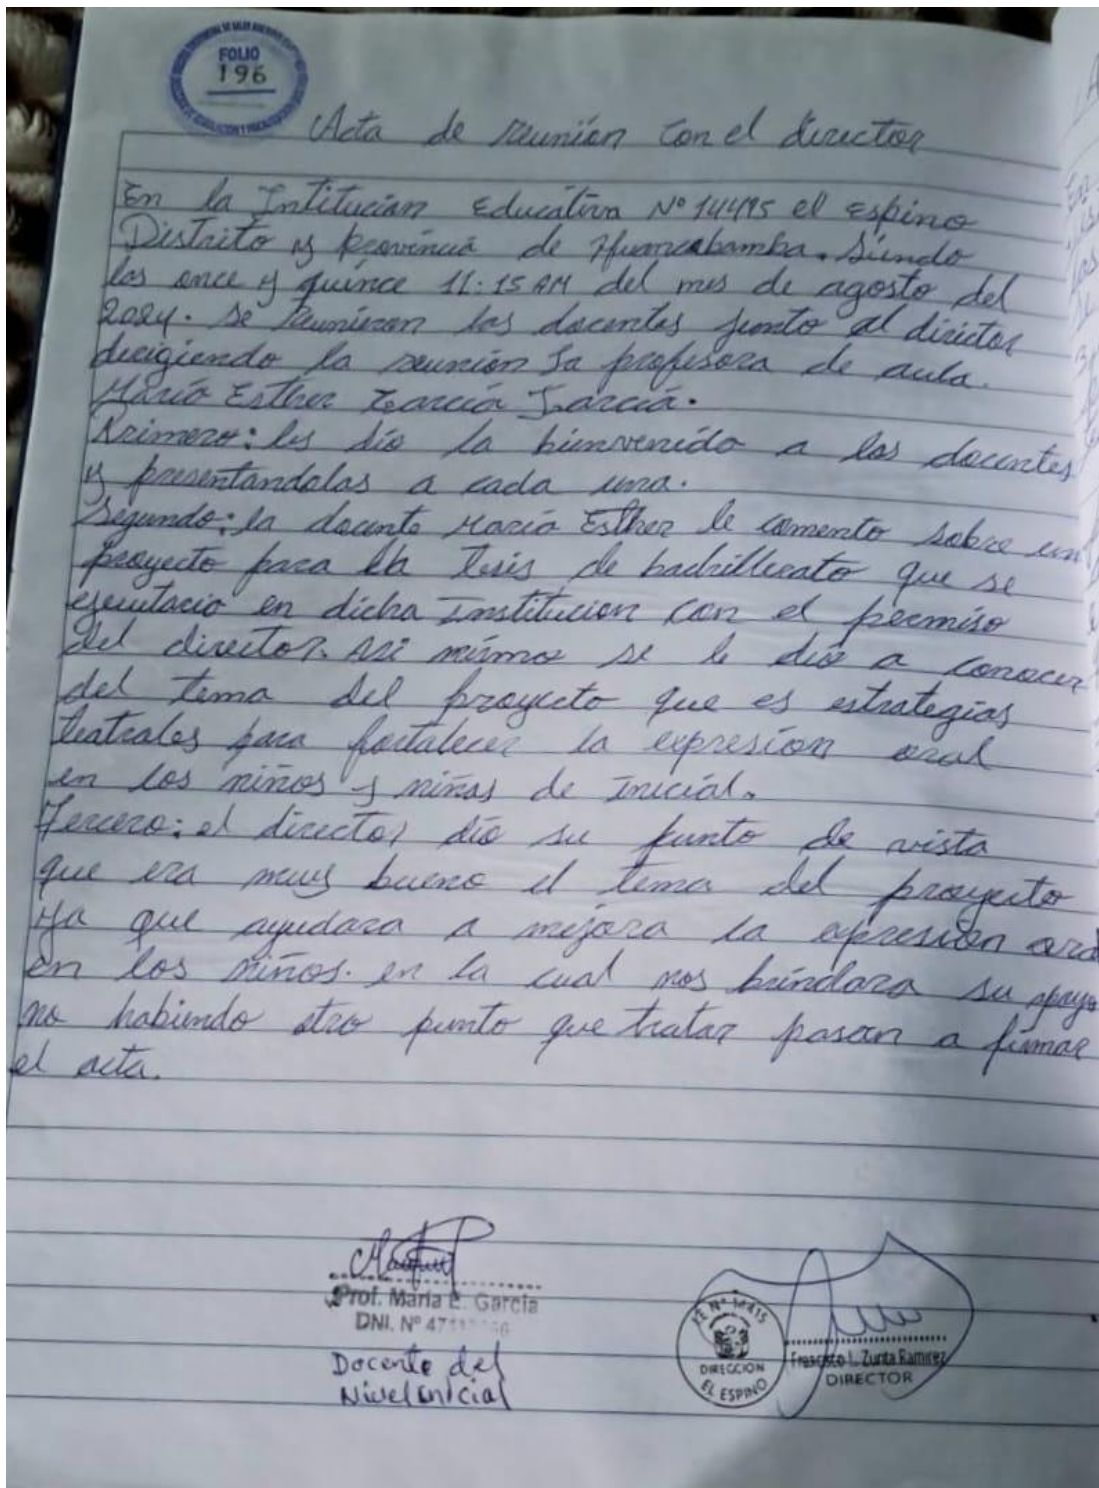 FOLIO
196
Acta de reunión con el director
En la Intitución Educativa Nº 14415 el Espino
Distrito y provincia de Huancabamba. Siendo
las once y quince 11:15 AM del mes de agosto del
2024. se reunieron las docentes junto al director
dirigiendo la reunión la profesora de aula.
María Esther García García.
Primero: les dio la bienvenida a las docentes
y presentandolas a cada una.
Segundo: la docente María Esther le comento sobre un
proyecto para la tesis de bachillerato que se
ejecutacio en dicha Institucion con el permiso
del director. Asi mismo se le dio a conocer
del tema del proyecto que es estrategias
teatrales para fortalecer la expresión oral
en los niños y niñas de Inicial.
Tercero: el director dio su punto de vista
que era muy bueno el tema del proyecto
ya que ayudara a mejora la expresión oral
en los niños. en la cual nos brindara su apoyo
no habiendo otro punto que tratar pasan a firmar
el acta.
Prof. María E. García
DNI. Nº
Docente del
Nivel inicial
I.E Nº 14415
DIRECCION
EL ESPINO
Francisco L. Zurita Ramirez
DIRECTOR